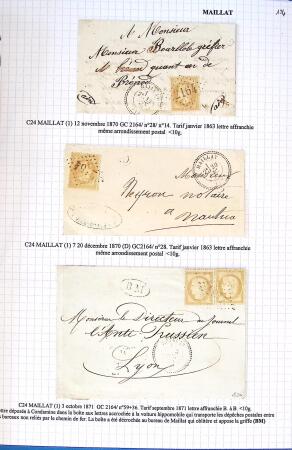 MAILLAT
A Monsieur
Monsieur Bourllod greffier
canton de
Brénod
C24 MAILLAT (1) 12 novembre 1870 GC 2164/ n°28/ n°14. Tarif janvier 1863 lettre affranchie
même arrondissement postal <10g.
MAILLAT
Monsieur
notaire
a Nantua
C24 MAILLAT (1) 7 20 décembre 1870 (D) GC2164/ n°28. Tarif janvier 1863 lettre affranchie
même arrondissement postal <10g.
BM
Monsieur le Directeur du Journal
l'Anti Prussien
Lyon
C24 MAILLAT (1) 3 octobre 1871 GC 2164/ n°59+36. Tarif septembre 1871 lettre affranchie B. à B. <10g.
ettre déposée à Condamine dans la boîte aux lettres accrochée à la voiture hippomobile qui transporte les dépêches postales entre
s bureaux non reliés par le chemin de fer. La boîte a été décrochée au bureau de Maillat qui oblitère et appose la griffe (BM)